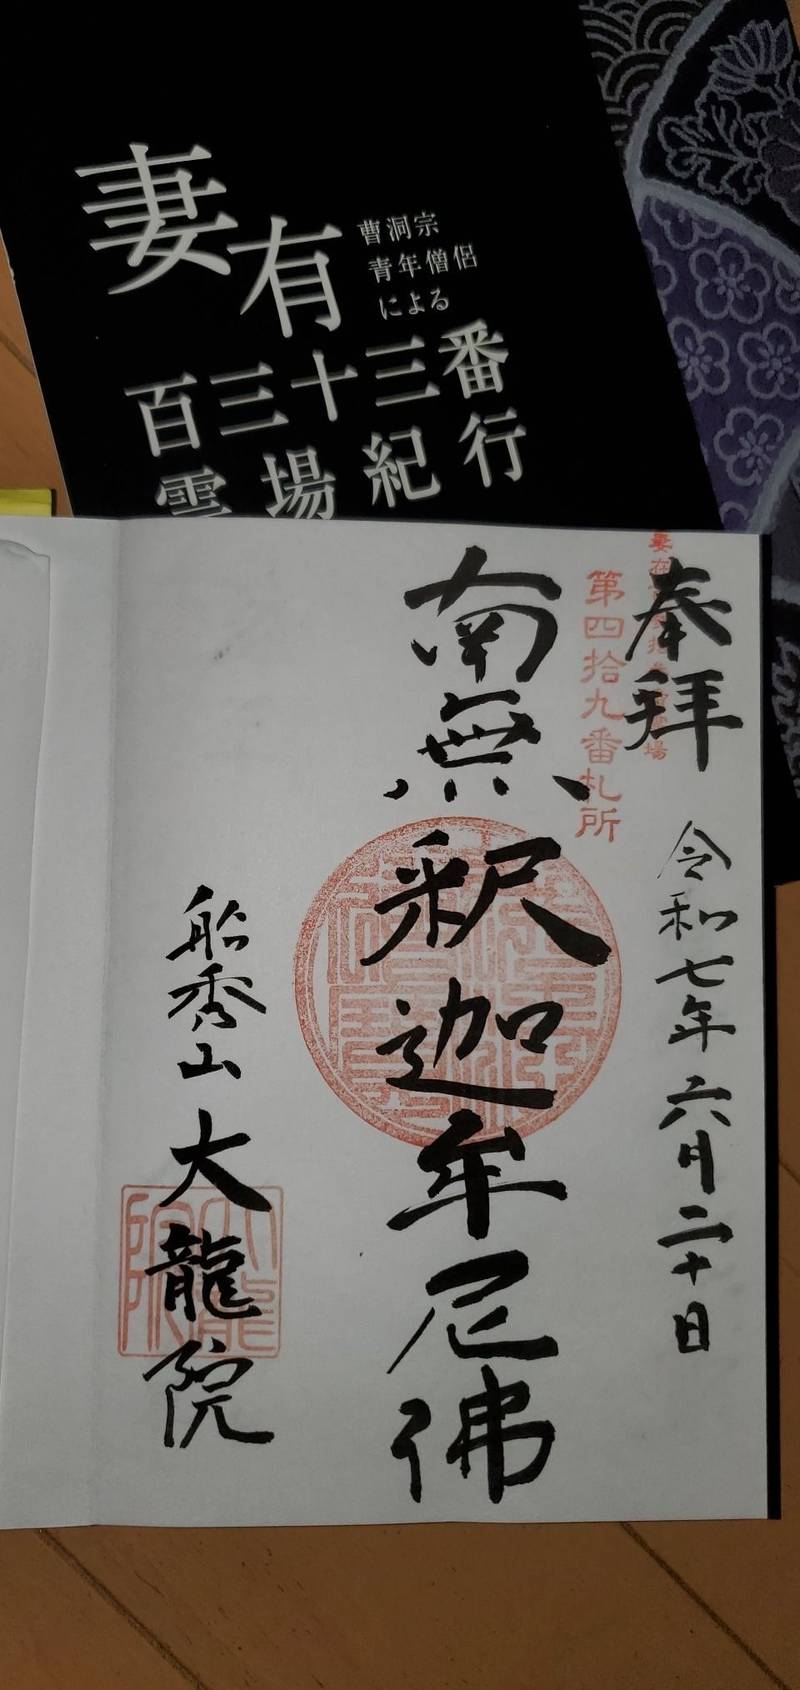 妻有
曹洞宗
青年僧侶
による
百三十三番
霊場紀行
奉拝
令和七年六月二十日
第四拾九番札所
南無釈迦牟尼佛
船秀山大龍院